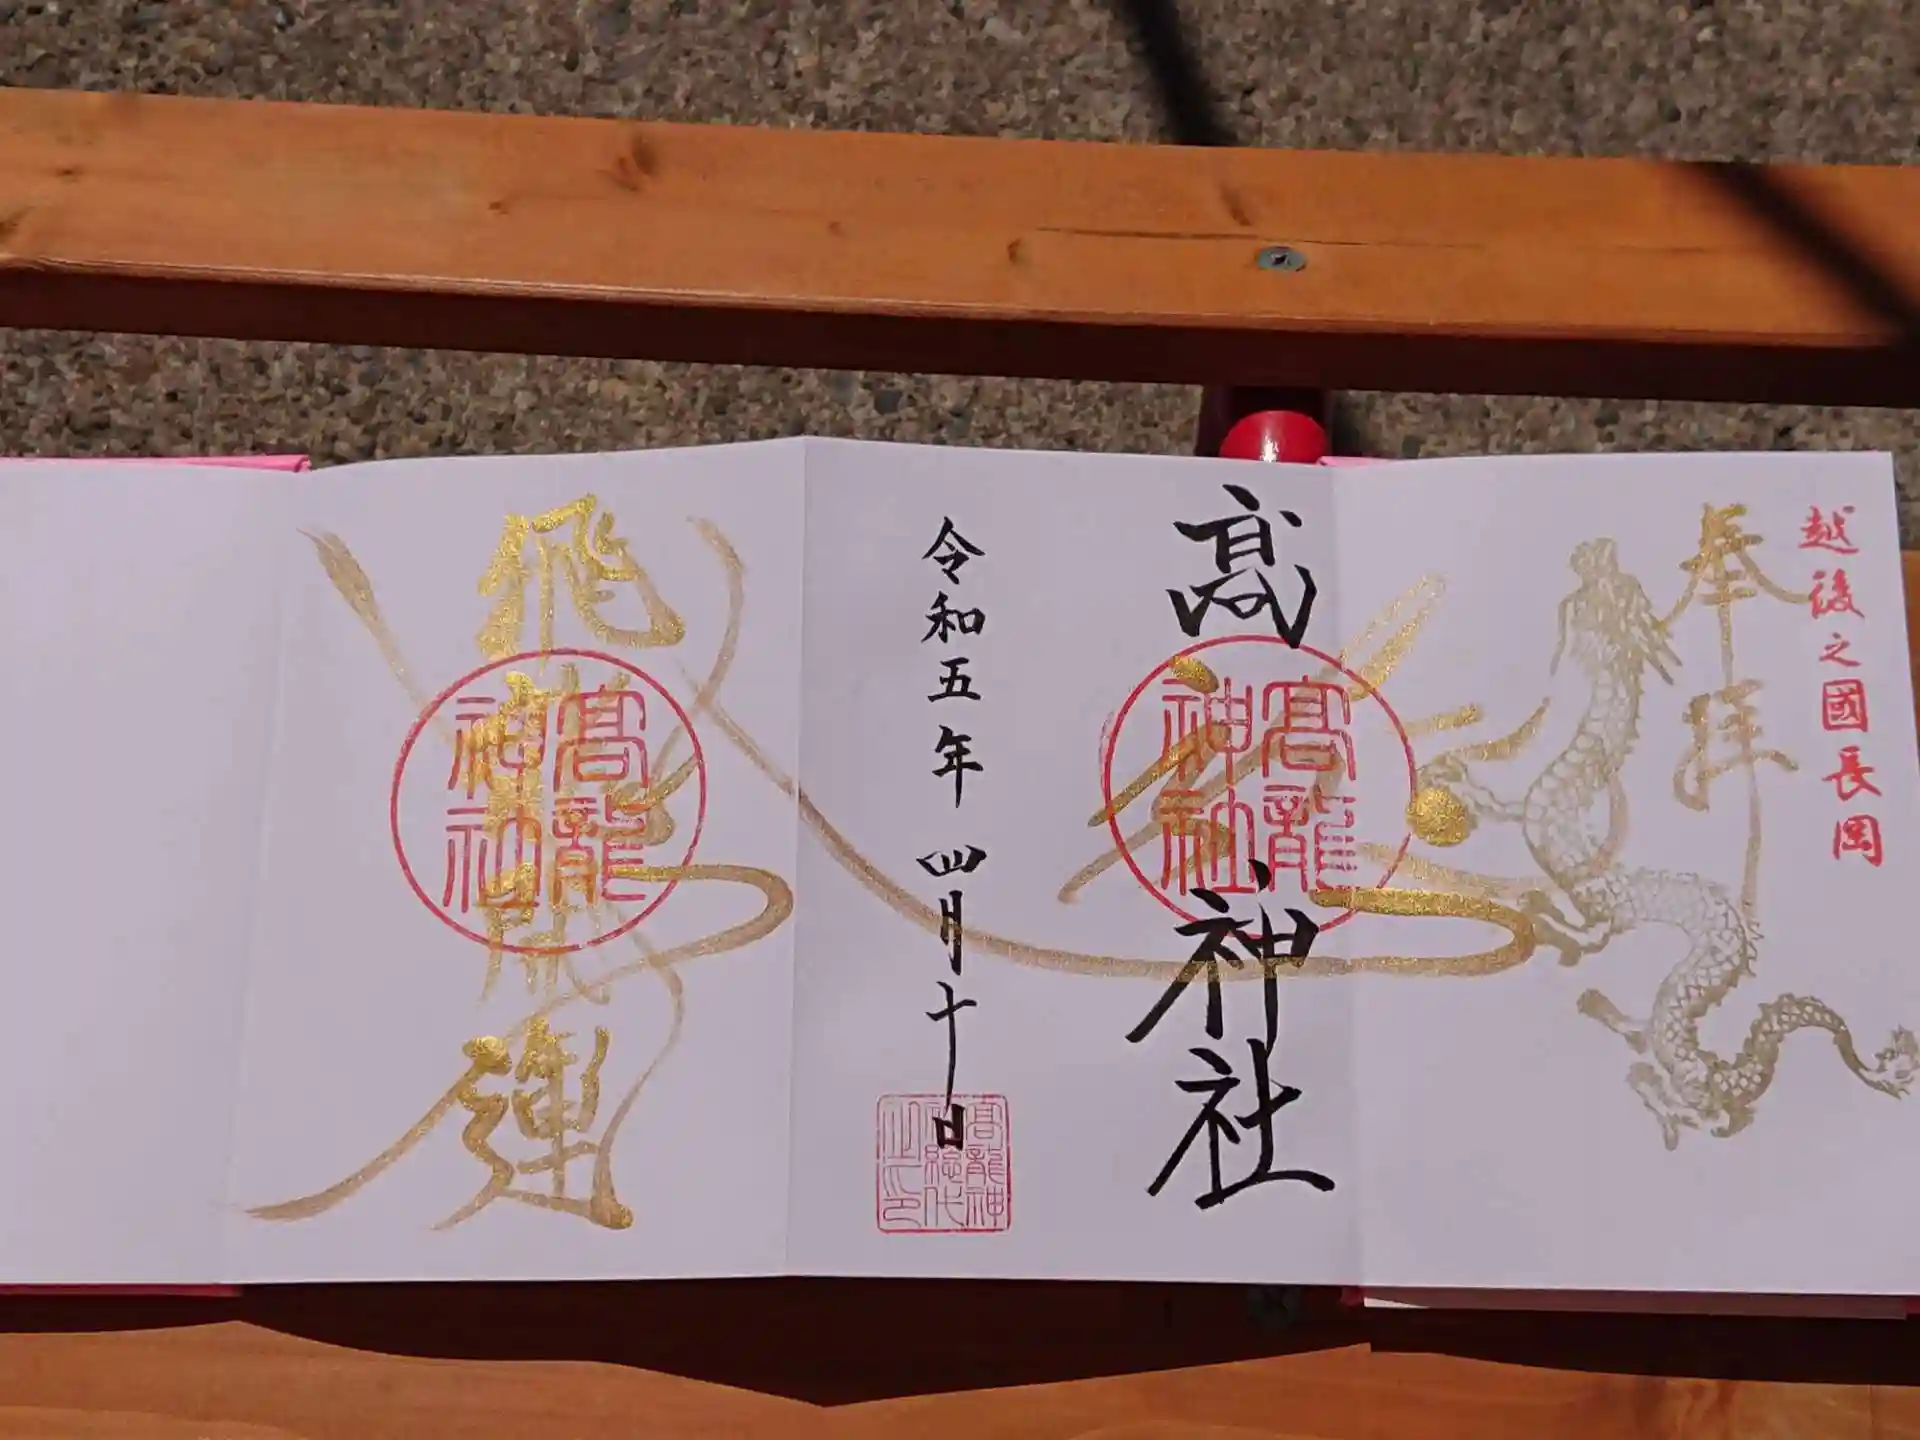 越後之國長岡
奉拝
髙龍神社
髙龍神社
令和五年 四月十日
高龍神社総代之印
飛
開運
髙龍神社